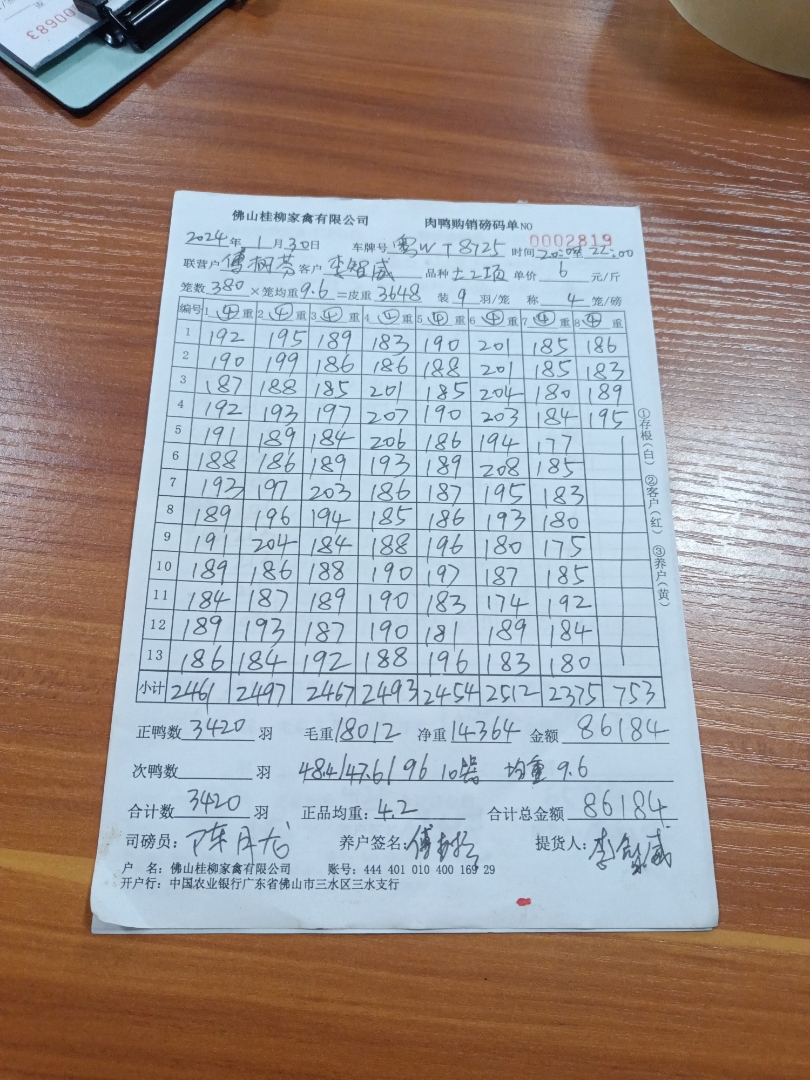 00683
佛山桂柳家禽有限公司 肉鸭购销磅码单NO 0002819
2024年1月30日 车牌号 粤W T8725 时间 20:00至22:00
联营户 傅树芬 客户 李智威 品种 土2项 单价 6 元/斤
笼数 380 ×笼均重 9.6 =皮重 3648 装 9 羽/笼 称 4 笼/磅
编号 1 ④ 重 2 ④ 重 3 ④ 重 4 ④ 重 5 ④ 重 6 ④ 重 7 ④ 重 8 ④ 重
1 192 195 189 183 190 201 185 186
2 190 199 186 186 188 201 185 183
3 187 188 185 201 185 204 180 189
4 192 193 197 207 190 203 184 195
5 191 189 184 206 186 194 177
6 188 186 189 193 189 208 185
7 193 197 203 186 187 195 183
8 189 196 194 185 186 193 180
9 191 204 184 188 196 180 175
10 189 186 188 190 197 187 185
11 184 187 189 190 183 174 192
12 189 193 187 190 181 189 184
13 186 184 192 188 196 183 180
小计 2461 2497 2467 2493 2454 2512 2375 753
①存根(白) ②客户(红) ③养户(黄)
正鸭数 3420 羽 毛重 18012 净重 14364 金额 86184
次鸭数 羽 48.4/47.6/96 10器 均重 9.6
合计数 3420 羽 正品均重: 4.2 合计总金额 86184
司磅员: 养户签名: 提货人: 李智威
户 名: 佛山桂柳家禽有限公司 账号: 444 401 010 400 169 29
开户行: 中国农业银行广东省佛山市三水区三水支行